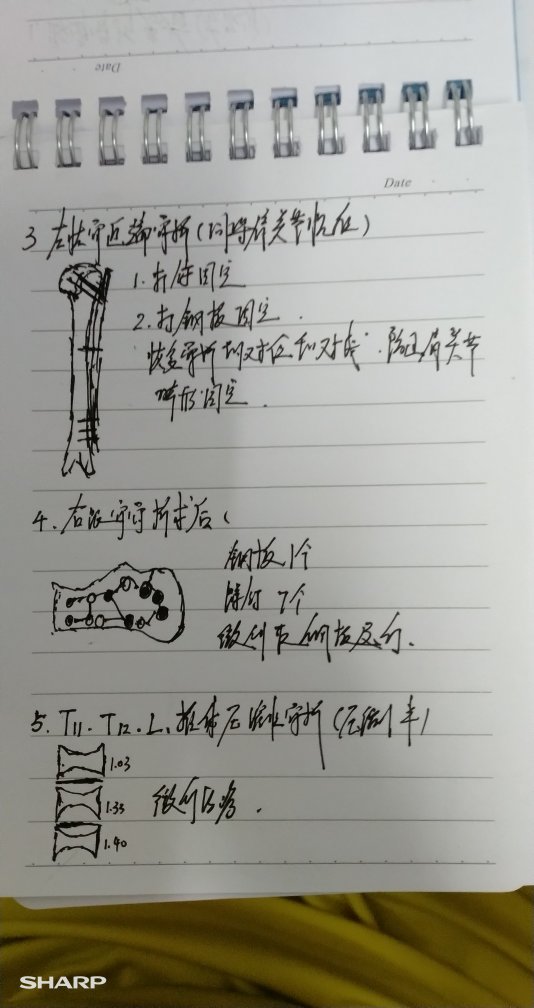 Date
Date
3 左肱骨近端骨折(同时肩关节脱位)
1. 打针固定
2. 打钢板固定.
恢复骨折 对位和对线. 肩关节
固定.
4. 右跟骨骨折术后(
钢板1个
钉 7个
钢板及钉.
5. T11. T12. L1 椎体压缩骨折(压缩1
1.03
1.35
1.40
SHARP